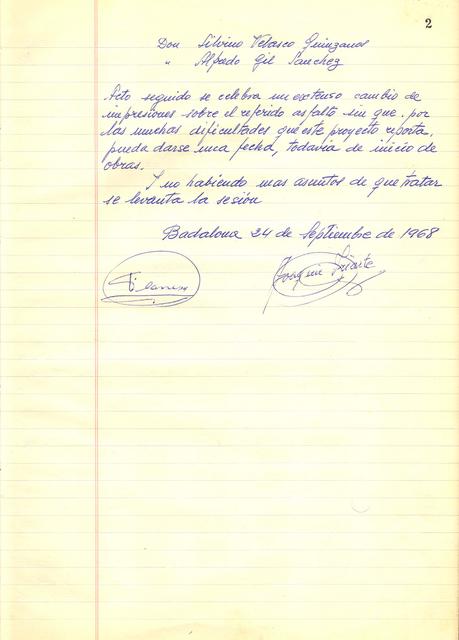 2
Don Silvino Velasco Quinzanos
" Alfredo Gil Sanchez
Acto seguido se celebra un extenso cambio de
impresiones sobre el referido asfalto sin que, por
las muchas dificultades que este proyecto reporta,
pueda darse una fecha, todavia de inicio de
obras.
Y no habiendo mas asuntos de que tratar
se levanta la sesión
Badalona 24 de Septiembre de 1968
Joaquin Iriarte